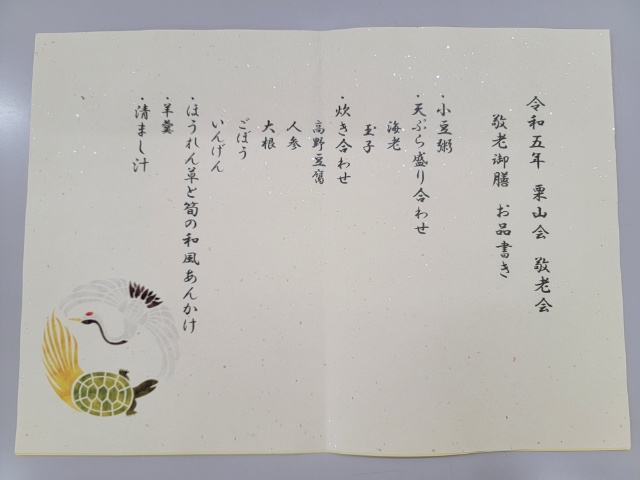 令和五年 栗山会 敬老会
敬老御膳 お品書き
・小豆粥
・天ぷら盛り合わせ
海老
玉子
・炊き合わせ
高野豆腐
人参
大根
ごぼう
いんげん
・ほうれん草と筍の和風あんかけ
・羊羹
・清まし汁